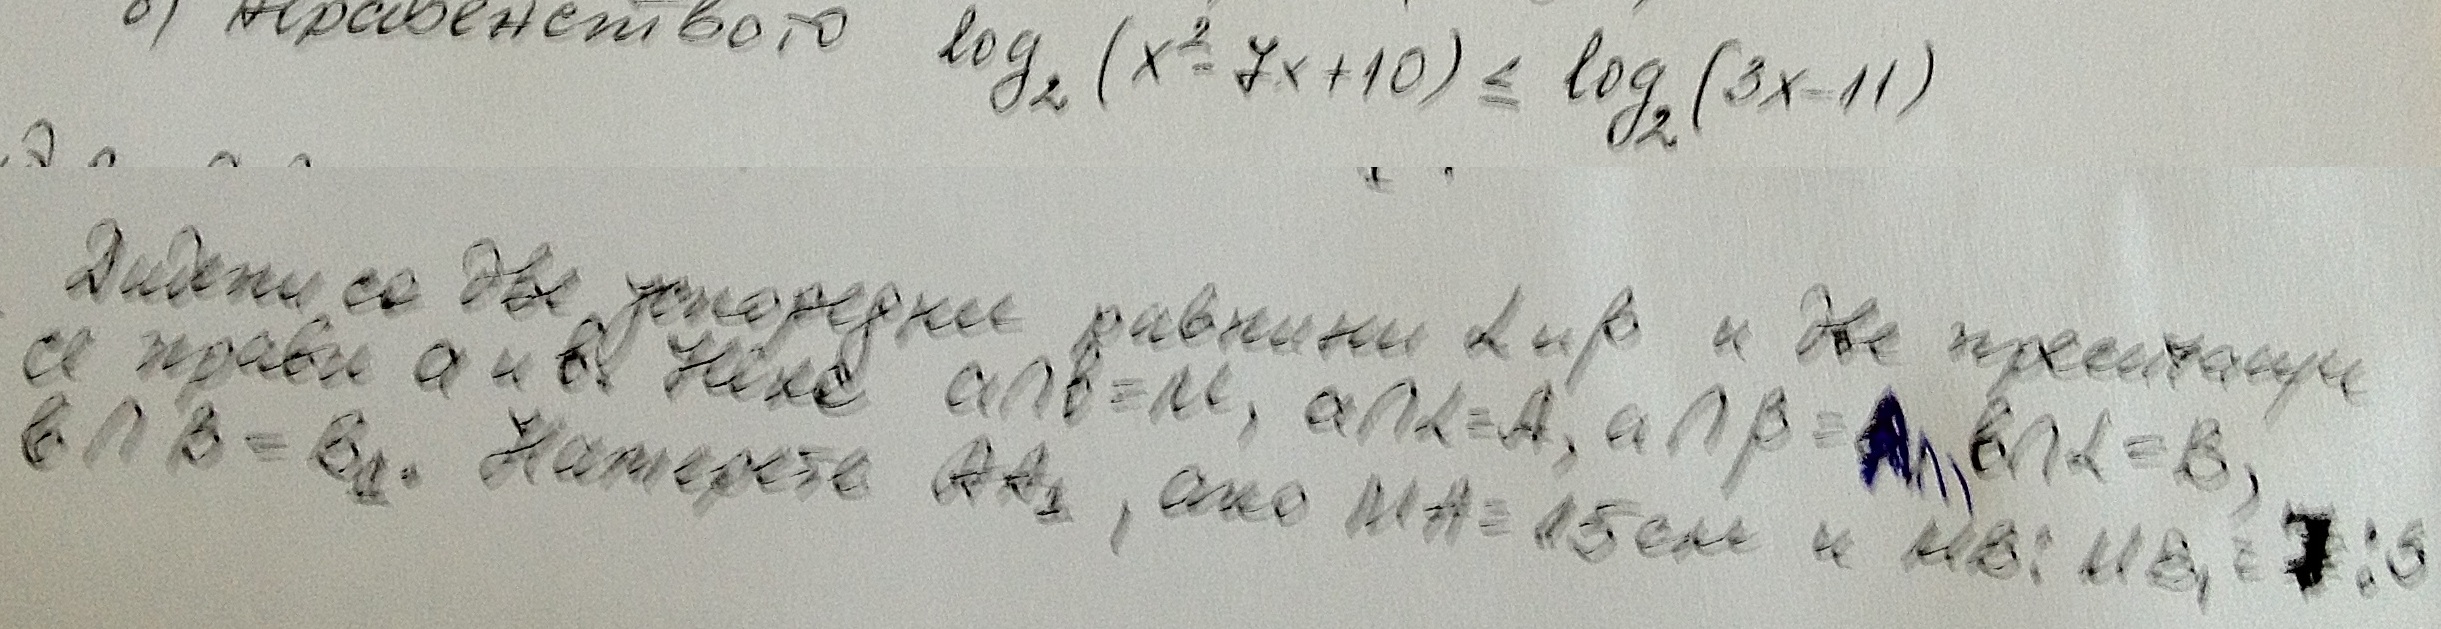 неравенството log₂(x²-7x+10) ≤ log₂(3x-11)
Дадени са две успоредни равнини α и β и две пресичащи
се прави a и b. Нека a∩b=M, a∩α=A, a∩β=A₁, b∩α=B,
b∩β=B₁. Намерете AA₁, ако MA=15см и MB:MB₁=